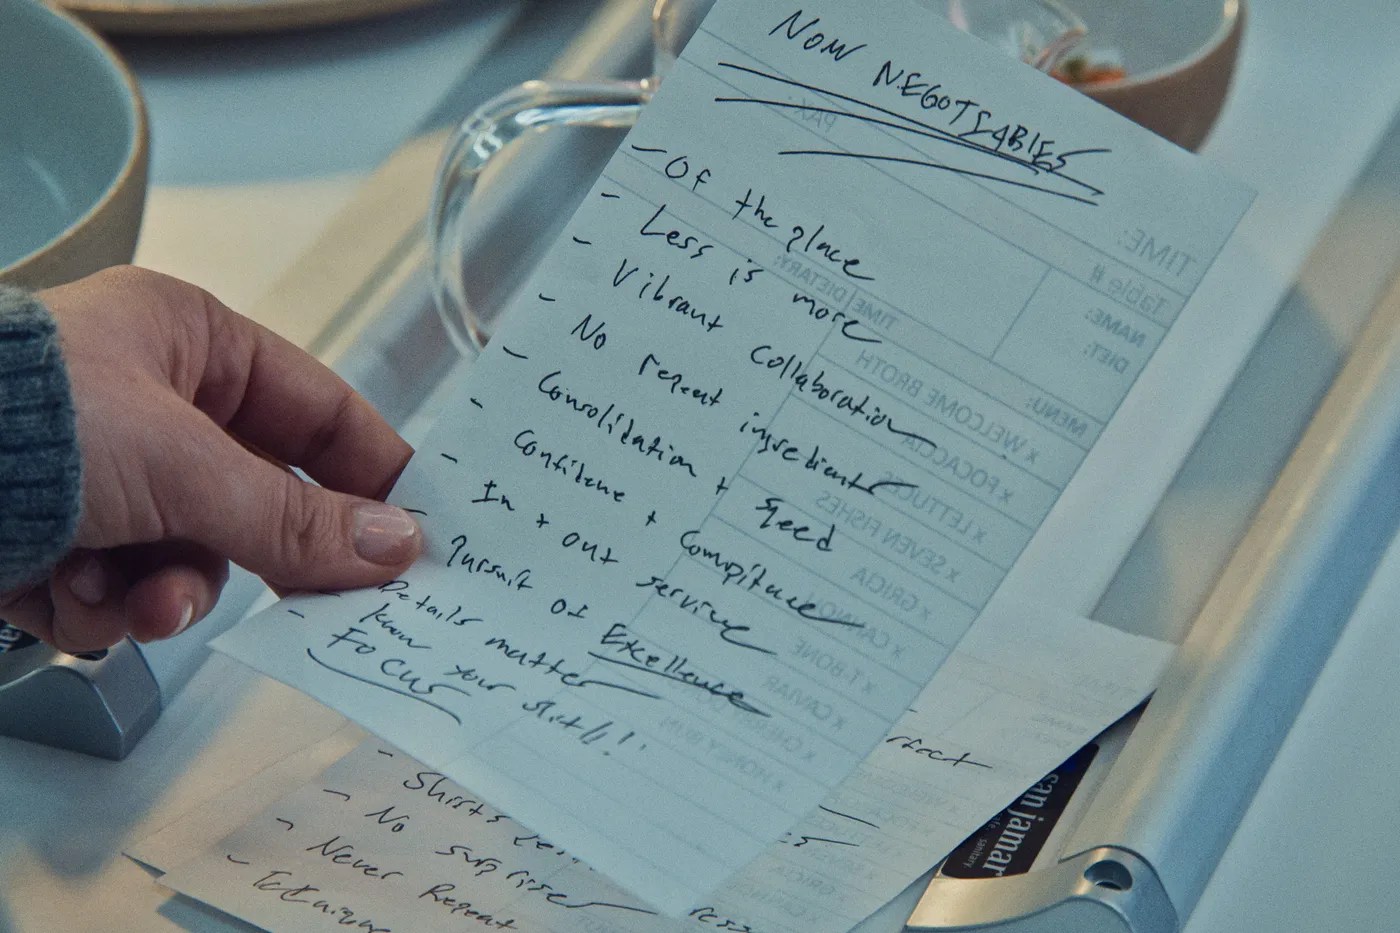 NON NEGOTIABLES
- Of the place
- Less is more
- Vibrant Collaboration
- No repeat ingredients
- Consolidation + speed
- Confidence + Competence
- In + out service
- Pursuit of Excellence
- Details matter
- Know your shit!!!
- FOCUS
TIME:
PAX:
Table #
NAME:
DIET:
TIME/DIETARY:
MENU:
x WELCOME BROTH
x FOCACCIA
x LETTUCE
x SEVEN FISHES
x GRICIA
x T-BONE
x CAVIAR
x HONEY BUN
- Shirts
- No surprises
- Never Repeat
- Technique
san jamar
safe. sanitary